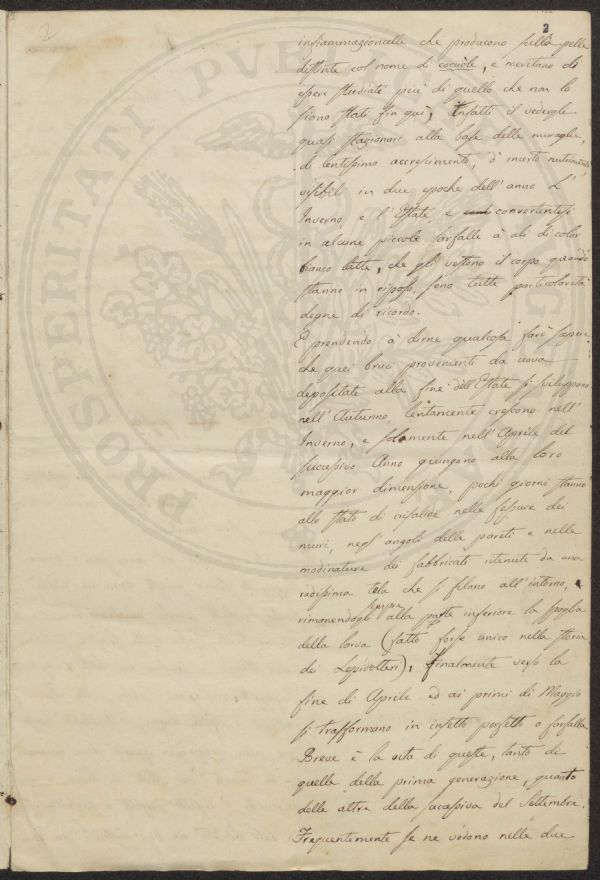 2
2
infiammazioncelle che producono sulla pelle
distinte col nome di cocciole, e meritano di
essere studiati più di quello che non lo
siono stati fin quì; Infatti il vedergli
quasi stazionari alla base delle muraglie,
di lentissimo accrescimento, d'incerto nutrimento
visibili in due epoche dell'anno L'
Inverno, e l'Estate, e convertentesi
in alcune piccole farfalle à ali di color
bianco latte, che gli vestono il corpo quando
stanno in riposo, sono tutte particolarità
degne di ricordo.
E prendendo à dirne qualcosa farò sapere
che quei bruci provenienti da uova
depositate alla fine dell'Estate si sviluppono
nell'Autunno, lentamente crescono nell'
Inverno, e solamente nell'Aprile del
successivo Anno giungono alla loro
maggior dimensione, pochi giorni stanno
allo stato di crisalide nelle fessure dei
muri, negl'angoli delle pareti e nelle
modinature dei fabbricati ritenute da una
radissima tela che si filano all'intorno,
rimanendogli sempre alla parte inferiore la spoglia
della larva (fatto forse unico nella storia
dei Lepidotteri); finalmente verso la
fine di Aprile ed ai primi di Maggio
si trasformano in insetto perfetto o farfalla
Breve è la vita di queste, tanto di
quelle della prima generazione, quanto
delle altre della successiva del Settembre.
Frequentemente se ne vedono nelle due
PROSPERITATI PVBLICAE